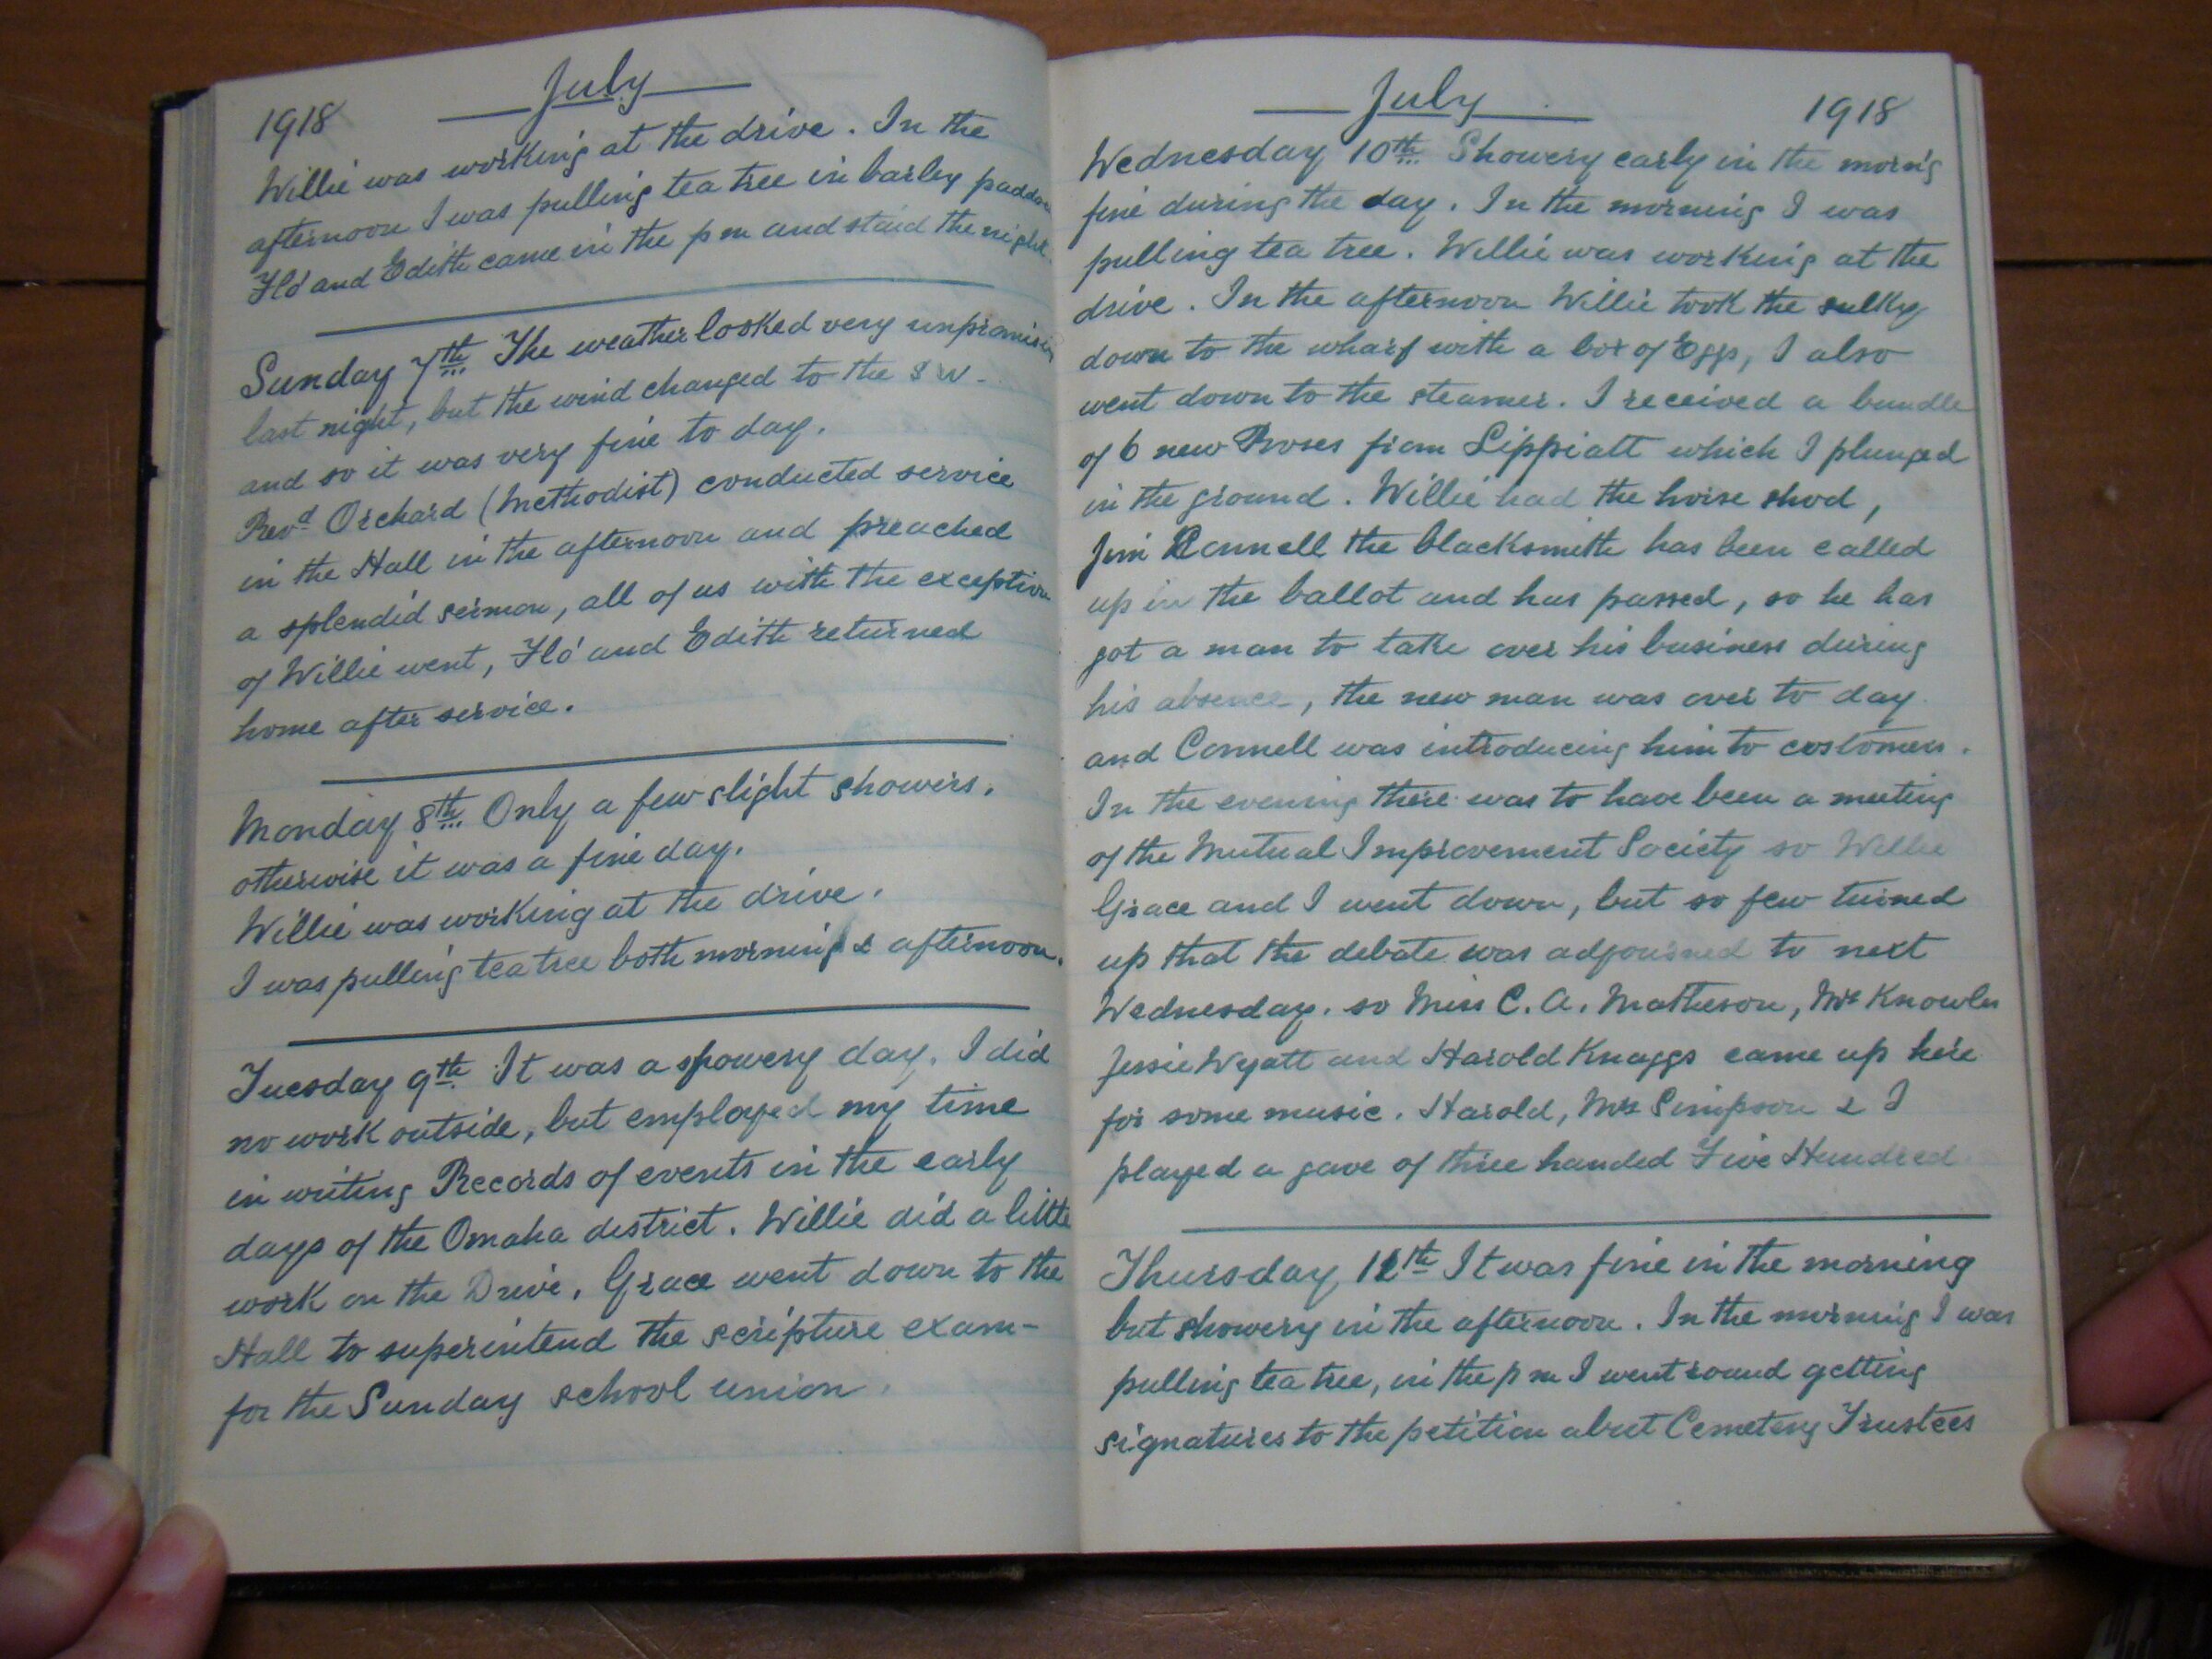 1918
July
Willie was working at the drive. In the
afternoon I was pulling tea tree in barley paddock
Flo' and Edith came in the pm and staid the night.
Sunday 7th The weather looked very unpromising
last night, but the wind changed to the S W.
and so it was very fine to day.
Revd Orchard (Methodist) conducted service
in the Hall in the afternoon and preached
a splendid sermon, all of us with the exception
of Willie went, Flo' and Edith returned
home after service.
Monday 8th Only a few slight showers.
otherwise it was a fine day.
Willie was working at the drive.
I was pulling tea tree both morning & afternoon.
Tuesday 9th It was a showery day. I did
no work outside, but employed my time
in writing Records of events in the early
days of the Omaha district. Willie did a little
work on the Drive. Grace went down to the
Hall to superintend the scripture exam-
for the Sunday school union.
July
1918
Wednesday 10th Showery early in the morn'g
fine during the day. In the morning I was
pulling tea tree. Willie was working at the
drive. In the afternoon Willie took the sulky
down to the wharf with a box of Eggs, I also
went down to the steamer. I received a bundle
of 6 new Roses from Lippiatt which I plunged
in the ground. Willie had the horse shod,
Jim Connell the blacksmith has been called
up in the ballot and has passed, so he has
got a man to take over his business during
his absence, the new man was over to day
and Connell was introducing him to costomers.
In the evening there was to have been a meeting
of the Mutual Improvement Society so Willie
Grace and I went down, but so few turned
up that the debate was adjourned to next
Wednesday. so Miss C. A. Matheson, Mrs Knowles
Jessie Wyatt and Harold Knaggs came up here
for some music. Harold, Mrs Simpson & I
played a gave of three handed Five Hundred.
Thursday 11th It was fine in the morning
but showery in the afternoon. In the morning I was
pulling tea tree, in the p m I went round getting
signatures to the petition about Cemetery Trustees